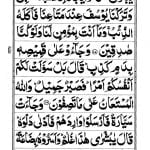 وَتَرَكْنَا يُوسُفَ عِنْدَ مَتَاعِنَا فَاَكَلَهُ
الذِّئْبُ وَمَآ اَنْتَ بِمُؤْمِنٍ لَّنَا وَلَوْ كُنَّا
صٰدِقِيْنَ وَجَآءُوْ عَلٰى قَمِيْصِهٖ
بِدَمٍ كَذِبٍ قَالَ بَلْ سَوَّلَتْ لَكُمْ
اَنْفُسُكُمْ اَمْرًا فَصَبْرٌ جَمِيْلٌ وَاللّٰهُ
الْمُسْتَعَانُ عَلٰى مَا تَصِفُوْنَ وَجَآءَتْ
سَيَّارَةٌ فَاَرْسَلُوْا وَارِدَهُمْ فَاَدْلٰى دَلْوَهٗ
قَالَ يٰبُشْرٰى هٰذَا غُلٰمٌ وَاَسَرُّوْهُ بِضَاعَةً